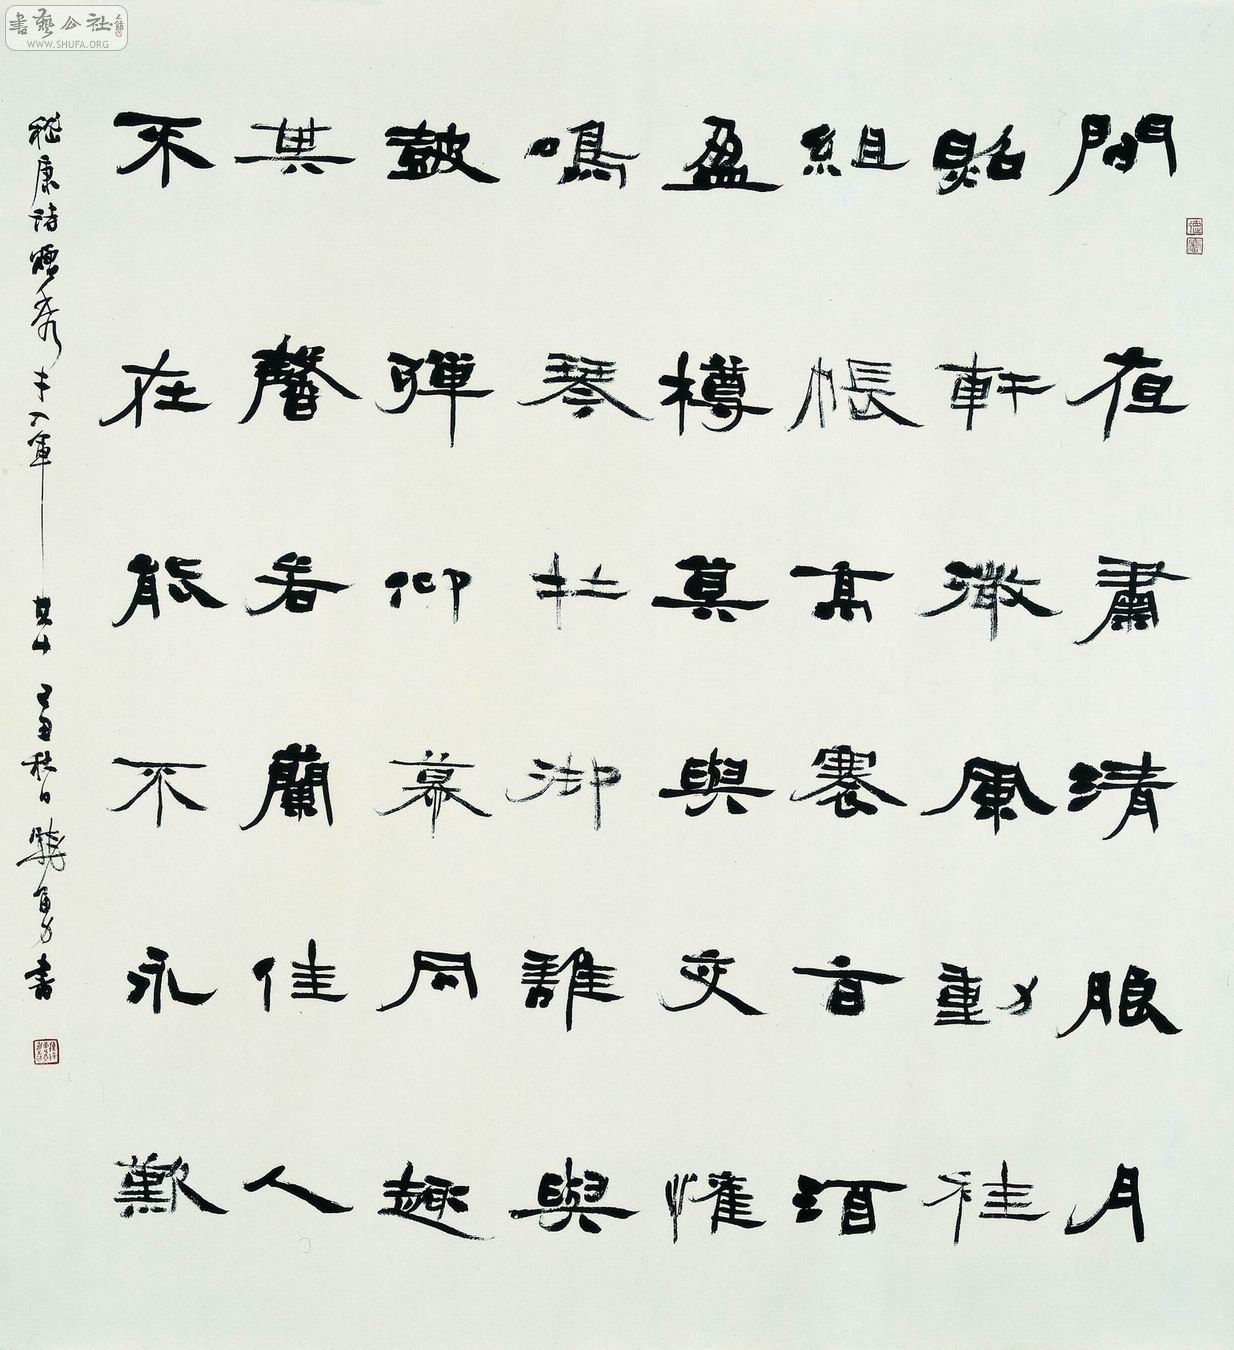 書藝公社
WWW.SHUFA.ORG
閒夜肅清朗月
照軒微風動袿
組帳高褰旨酒
盈樽莫與交懽
鳴琴在御誰與
鼓彈仰慕同趣
其馨若蘭佳人
不在能不永歎
嵇康詩贈秀才入軍 己丑秋日 書